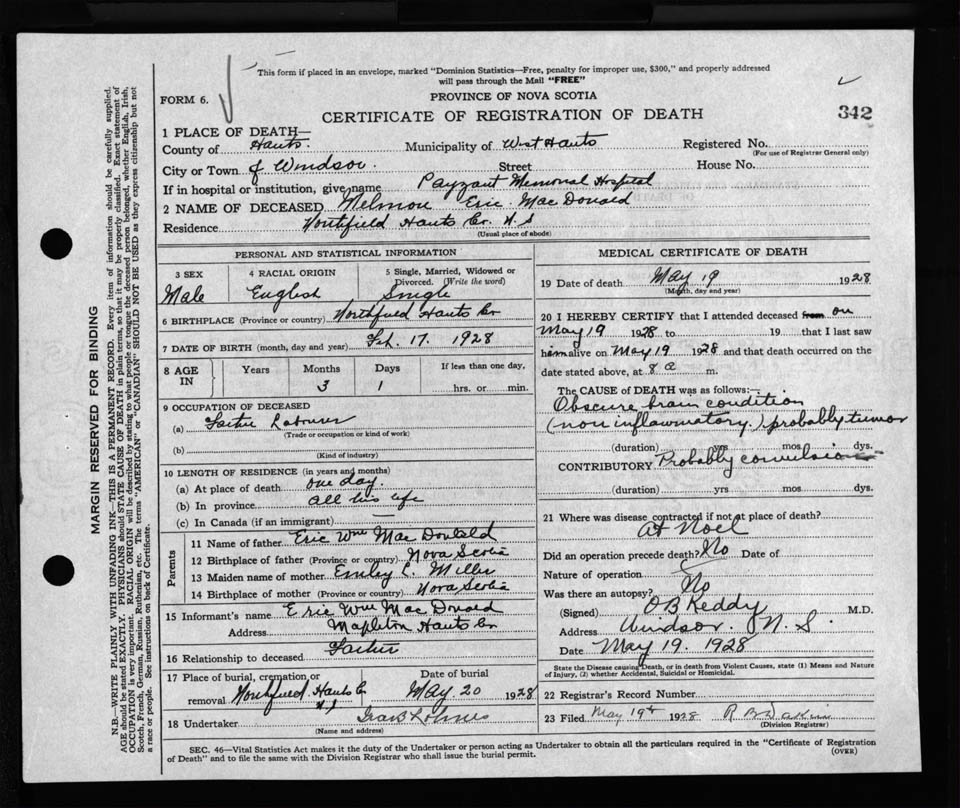 This form if placed in an envelope, marked "Dominion Statistics—Free, penalty for improper use, $300," and properly addressed
will pass through the Mail "FREE"
FORM 6.
PROVINCE OF NOVA SCOTIA
CERTIFICATE OF REGISTRATION OF DEATH
342
1 PLACE OF DEATH—
County of Hants. Municipality of West Hants Registered No.
(For use of Registrar General only)
City or Town of Windsor. Street House No.
If in hospital or institution, give name Payzant Memorial Hospital
2 NAME OF DECEASED Melmon Eric Mac Donald
Residence Northfield Hants Co. N. S
(Usual place of abode)
PERSONAL AND STATISTICAL INFORMATION
3 SEX 4 RACIAL ORIGIN 5 Single, Married, Widowed or
Divorced. (Write the word)
Male English Single
6 BIRTHPLACE (Province or country) Northfield Hants Co
7 DATE OF BIRTH (month, day and year) Feb. 17. 1928
8 AGE IN Years Months Days If less than one day,
3 1 hrs. or min.
9 OCCUPATION OF DECEASED
(a) Father Labourer
(Trade or occupation or kind of work)
(b)
(Kind of industry)
10 LENGTH OF RESIDENCE (in years and months)
(a) At place of death one day.
(b) In province all his life
(c) In Canada (if an immigrant)
Parents
11 Name of father Eric Wm Mac Donald
12 Birthplace of father (Province or country) Nova Scotia
13 Maiden name of mother Emily C. Miller
14 Birthplace of mother (Province or country) Nova Scotia
15 Informant's name Eric Wm Mac Donald
Address Mapleton Hants Co
16 Relationship to deceased Father
17 Place of burial, cremation or
removal Northfield Hants Co May 20 1928
N.S
18 Undertaker
(Name and address)
MEDICAL CERTIFICATE OF DEATH
19 Date of death May 19 1928
(Month, day and year)
20 I HEREBY CERTIFY that I attended deceased from on
May 19 1928 to 19 that I last saw
him alive on May 19 1928 and that death occurred on the
date stated above, at 8 a m.
The CAUSE of DEATH was as follows:—
Obscure brain condition
(non inflammatory.) probably tumor
(duration) yrs mos dys.
CONTRIBUTORY Probably convulsions
(duration) yrs mos dys.
21 Where was disease contracted if not at place of death?
At Noel
Did an operation precede death? No Date of
Nature of operation
Was there an autopsy? No
(Signed) O B Keddy M.D.
Address Windsor. N. S.
Date May 19. 1928
State the Disease causing Death, or in death from Violent Causes, state (1) Means and Nature
of Injury, (2) whether Accidental, Suicidal or Homicidal.
22 Registrar's Record Number
23 Filed May 19th 1928
(Division Registrar)
SEC. 46—Vital Statistics Act makes it the duty of the Undertaker or person acting as Undertaker to obtain all the particulars required in the "Certificate of Registration
of Death" and to file the same with the Division Registrar who shall issue the burial permit.
(OVER)
MARGIN RESERVED FOR BINDING
N.B.—WRITE PLAINLY WITH UNFADING INK—THIS IS A PERMANENT RECORD. Every item of information should be carefully supplied.
AGE should be stated EXACTLY. PHYSICIANS should STATE CAUSE OF DEATH in plain terms, so that it may be properly classified. Exact statement of
OCCUPATION is very important. RACIAL ORIGIN will be described by stating to what people or tongue the deceased person belonged, whether English, Irish,
Scotch, French, German, Russian, Ruthenian, etc. The terms "AMERICAN" or "CANADIAN" SHOULD NOT BE USED as they express citizenship but not
a race or people. See instructions on back of Certificate.